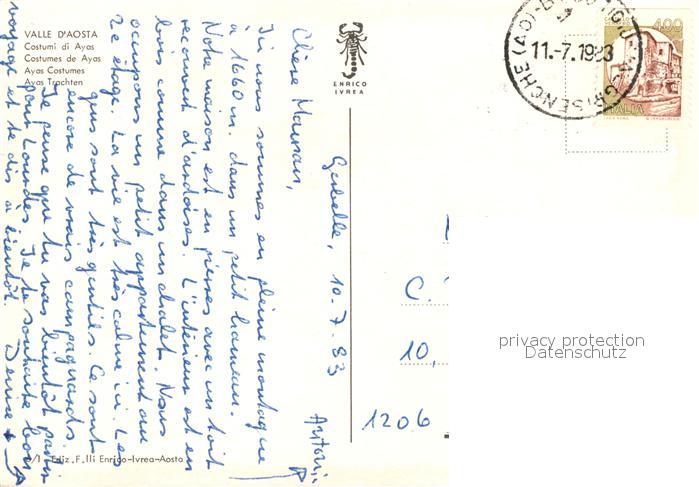 VALLE D'AOSTA
Costumi di Ayas
Costumes de Ayas
Ayas Costumes
Ayas Trachten
ENRICO
IVREA
11.-7.1983
400
ITALIA
10-7-83
Chère Maman,
Ici nous sommes en pleine montagne
à 1660 m. dans un petit hameau.
Notre maison est en pierres avec un toit
recouvert d'ardoises. L'intérieur est en
bois comme dans un chalet. Nous
occupons un petit appartement au
2e étage. La vie est très calme ici. Les
gens sont très gentils. Ce sont
encore de vrais campagnards.
Je pense que tu vas bientôt partir
pour Lourdes. Je te souhaite bon
voyage et te dis à bientôt. Denise +
C.
10,
1206
Ediz. F.lli Enrico-Ivrea-Aosta
privacy protection
Datenschutz